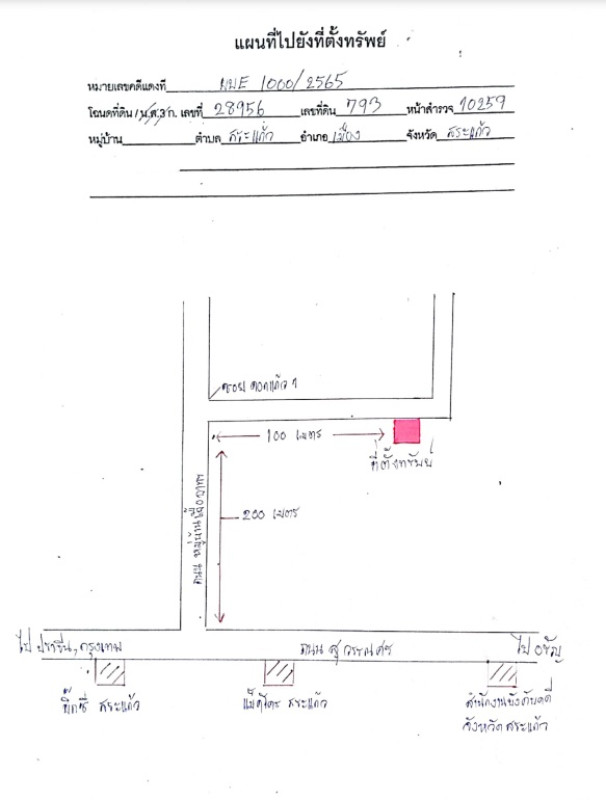 แผนที่ไปยังที่ตั้งทรัพย์
หมายเลขคดีแดงที่ ผบE 1000/2565
โฉนดที่ดิน/น.ส.3 ก. เลขที่ 28956 เลขที่ดิน 793 หน้าสำรวจ 10259
หมู่บ้าน ตำบล สระแก้ว อำเภอ เมือง จังหวัด สระแก้ว
ซอย ดอกแก้ว 1
100 เมตร
ที่ตั้งทรัพย์
ถนน หมู่บ้าน
200 เมตร
ไป ปราจีน, กรุงเทพ ถนน สุวรรณศร ไป อรัญ
บิ๊กซี สระแก้ว แม็คโคร สระแก้ว สำนักงานบังคับคดี
จังหวัดสระแก้ว